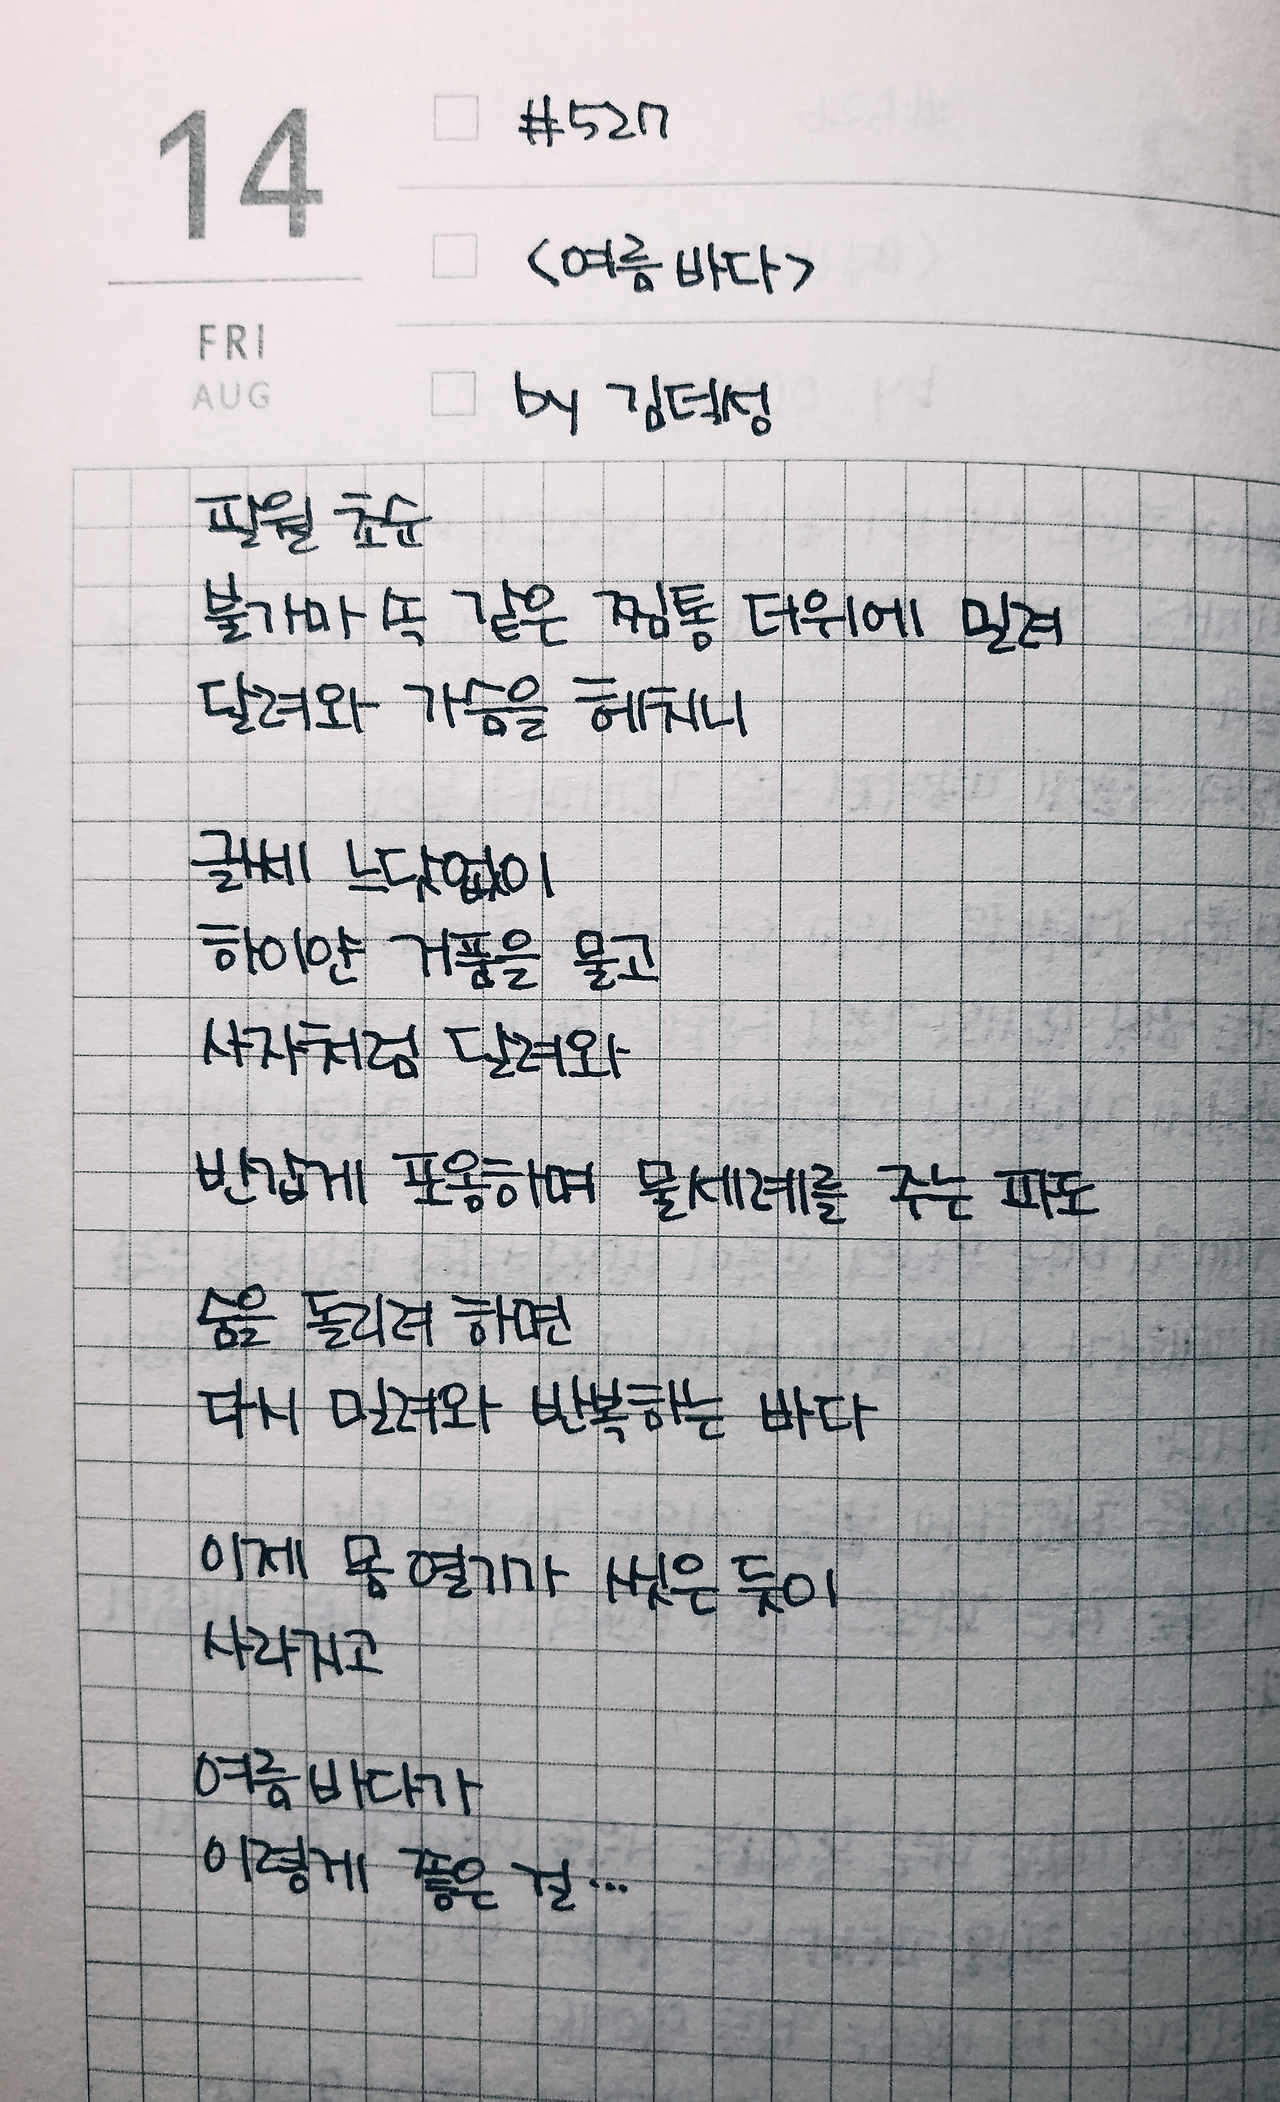 14
FRI
AUG
#527
<여름 바다>
by 김덕성
팔월 초순
불가마 속 같은 찜통 더위에 밀려
달려와 가슴을 헤치니
글쎄 느닷없이
하이얀 거품을 물고
사자처럼 달려와
반갑게 포옹하며 물세례를 주는 파도
숨을 돌리려 하면
다시 밀려와 반복하는 바다
이제 몸 열기가 씻은 듯이
사라지고
여름 바다가
이렇게 좋은 걸...